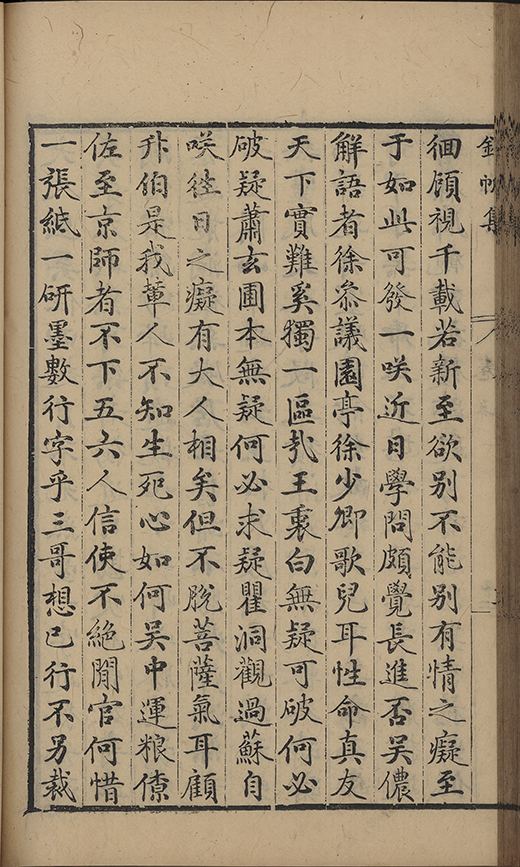 錦帆集
徊顧視千載若新至欲別不能別有情之癡至
于如此可發一咲近日學問頗覺長進否吴儂
解語者徐叅議園亭徐少卿歌兒耳性命真友
天下實難奚獨一區㢤王裏白無疑可破何必
破疑蕭玄圃本無疑何必求疑瞿洞觀過蘇自
咲徃日之癡有大人相矣但不脫菩薩氣耳顧
升伯是我輩人不知生死心如何吴中運粮僚
佐至京師者不下五六人信使不絕閒官何惜
一張紙一研墨數行字乎三哥想已行不另裁